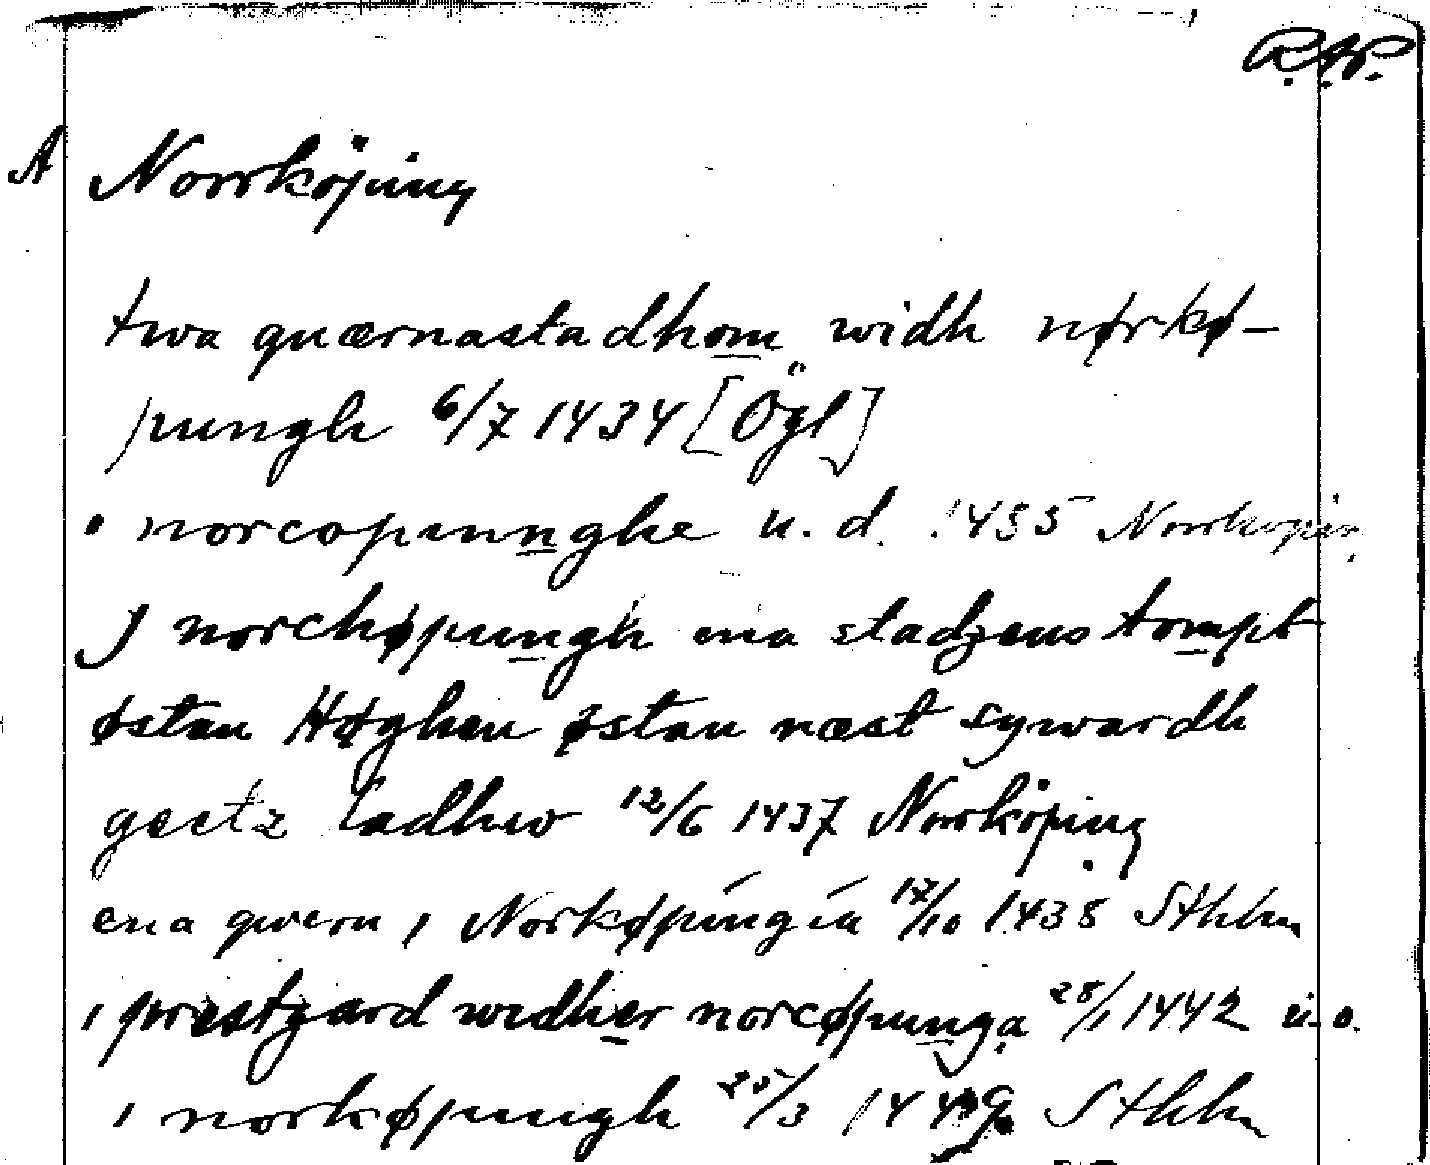 R.A.P.
A Norrköping
twa quærnastadhom widh nørkø-
pungh 6/7 1434 [Ögl]
norcopunnghe u. d. 1435 Norrköpin
J norchøpungh ena stadzens tompt
østan Høghen østan næst sywardh
gestz ladhw 12/6 1437 Norrköping
ena qwern i Norkøpingia 17/10 1438 Sthlm
i prestgard widher norcøpunga 28/1 1442 u. o.
i norkøpungh 25/3 Sthlm